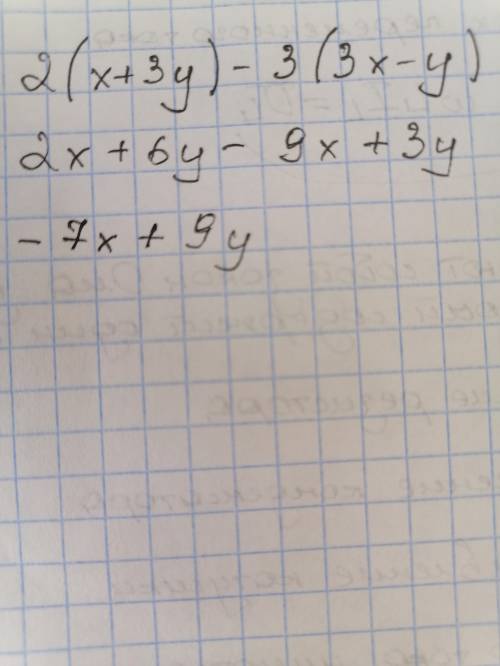 2(x+3y) - 3(3x-y)
2x + 6y - 9x + 3y
- 7x + 9y